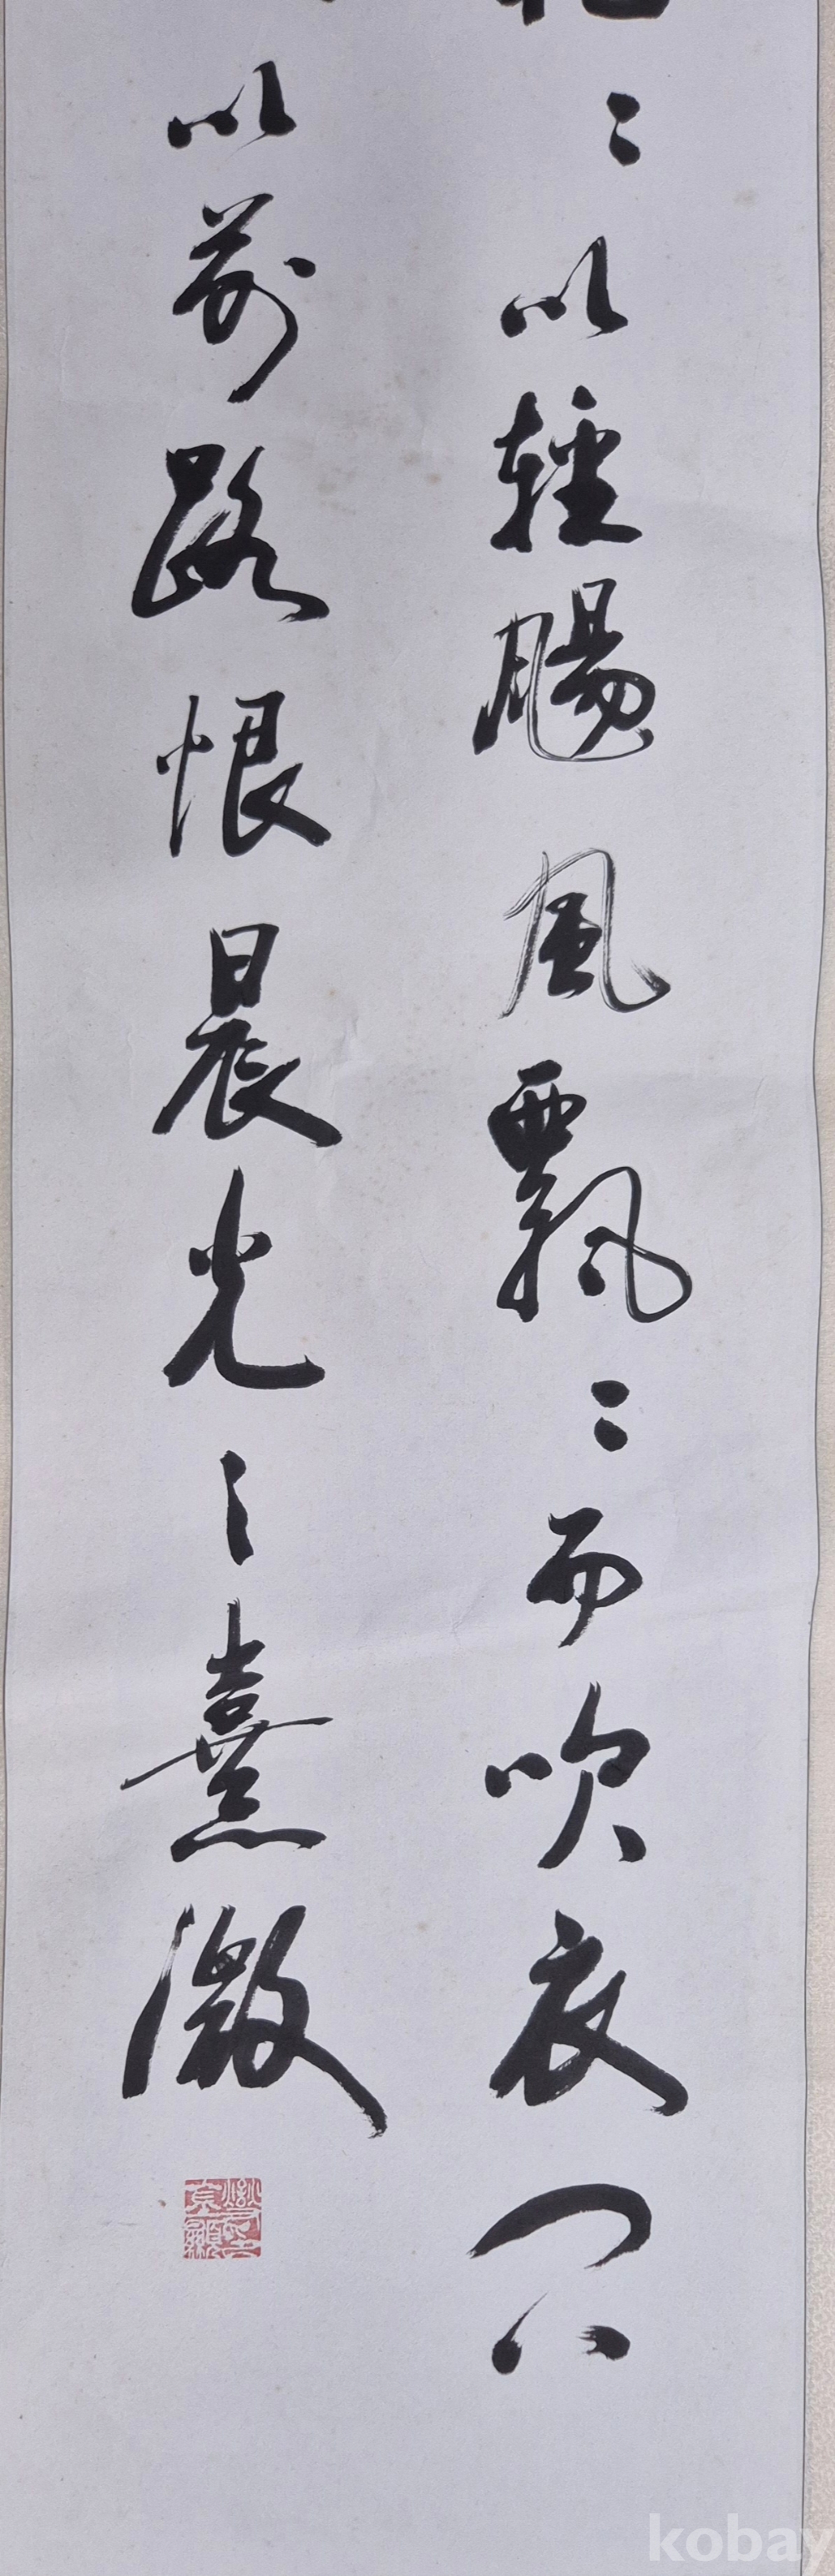 〻以輕颺風飄〻而吹衣問
以前路恨晨光之熹微
kobay